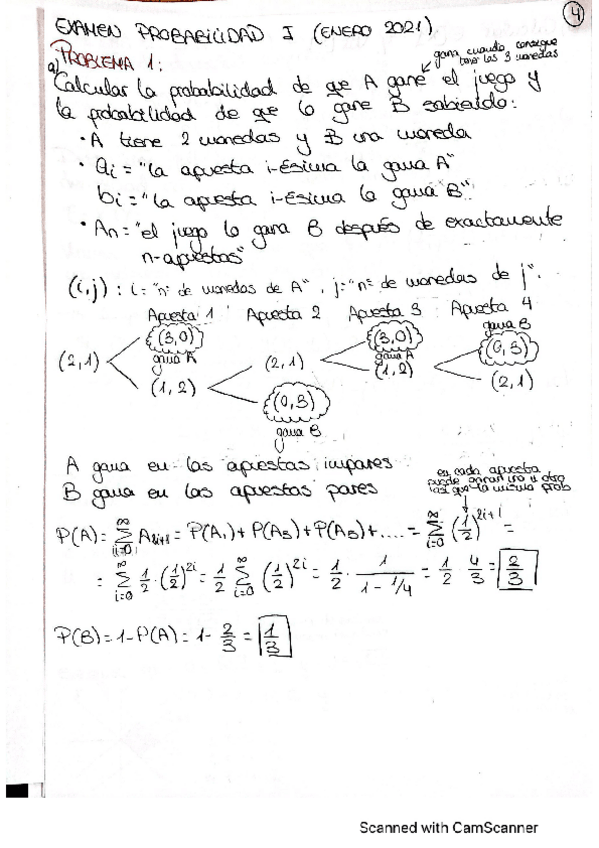 4
EXAMEN PROBABILIDAD I (ENERO 2021)
PROBLEMA 1:
gana cuando consigue
tener las 3 monedas
a) Calcular la probabilidad de que A gane el juego y
la probabilidad de que lo gane B sabiendo:
• A tiene 2 monedas y B una moneda
• ai = "la apuesta i-ésima la gana A"
bi = "la apuesta i-ésima la gana B"
• An = "el juego lo gana B después de exactamente
n-apuestas"
(i,j) : i = "nº de monedas de A", j = "nº de monedas de j".
Apuesta 1 Apuesta 2 Apuesta 3 Apuesta 4
gana B
(3,0) (3,0) (0,3)
(2,1) gana A (2,1) gana A
(1,2) (1,2) (2,1)
(0,3)
gana B
A gana en las apuestas impares
B gana en las apuestas pares
en cada apuesta
puede ganar uno u otro
así que la misma prob
P(A) = ∑_{i=0}^{∞} A_{2i+1} = P(A₁) + P(A₃) + P(A₅) + .... = ∑_{i=0}^{∞} (1/2)^{2i+1} =
= ∑_{i=0}^{∞} 1/2 · (1/2)^{2i} = 1/2 ∑_{i=0}^{∞} (1/2)^{2i} = 1/2 · 1/(1 - 1/4) = 1/2 · 4/3 = 2/3
P(B) = 1 - P(A) = 1 - 2/3 = 1/3
Scanned with CamScanner